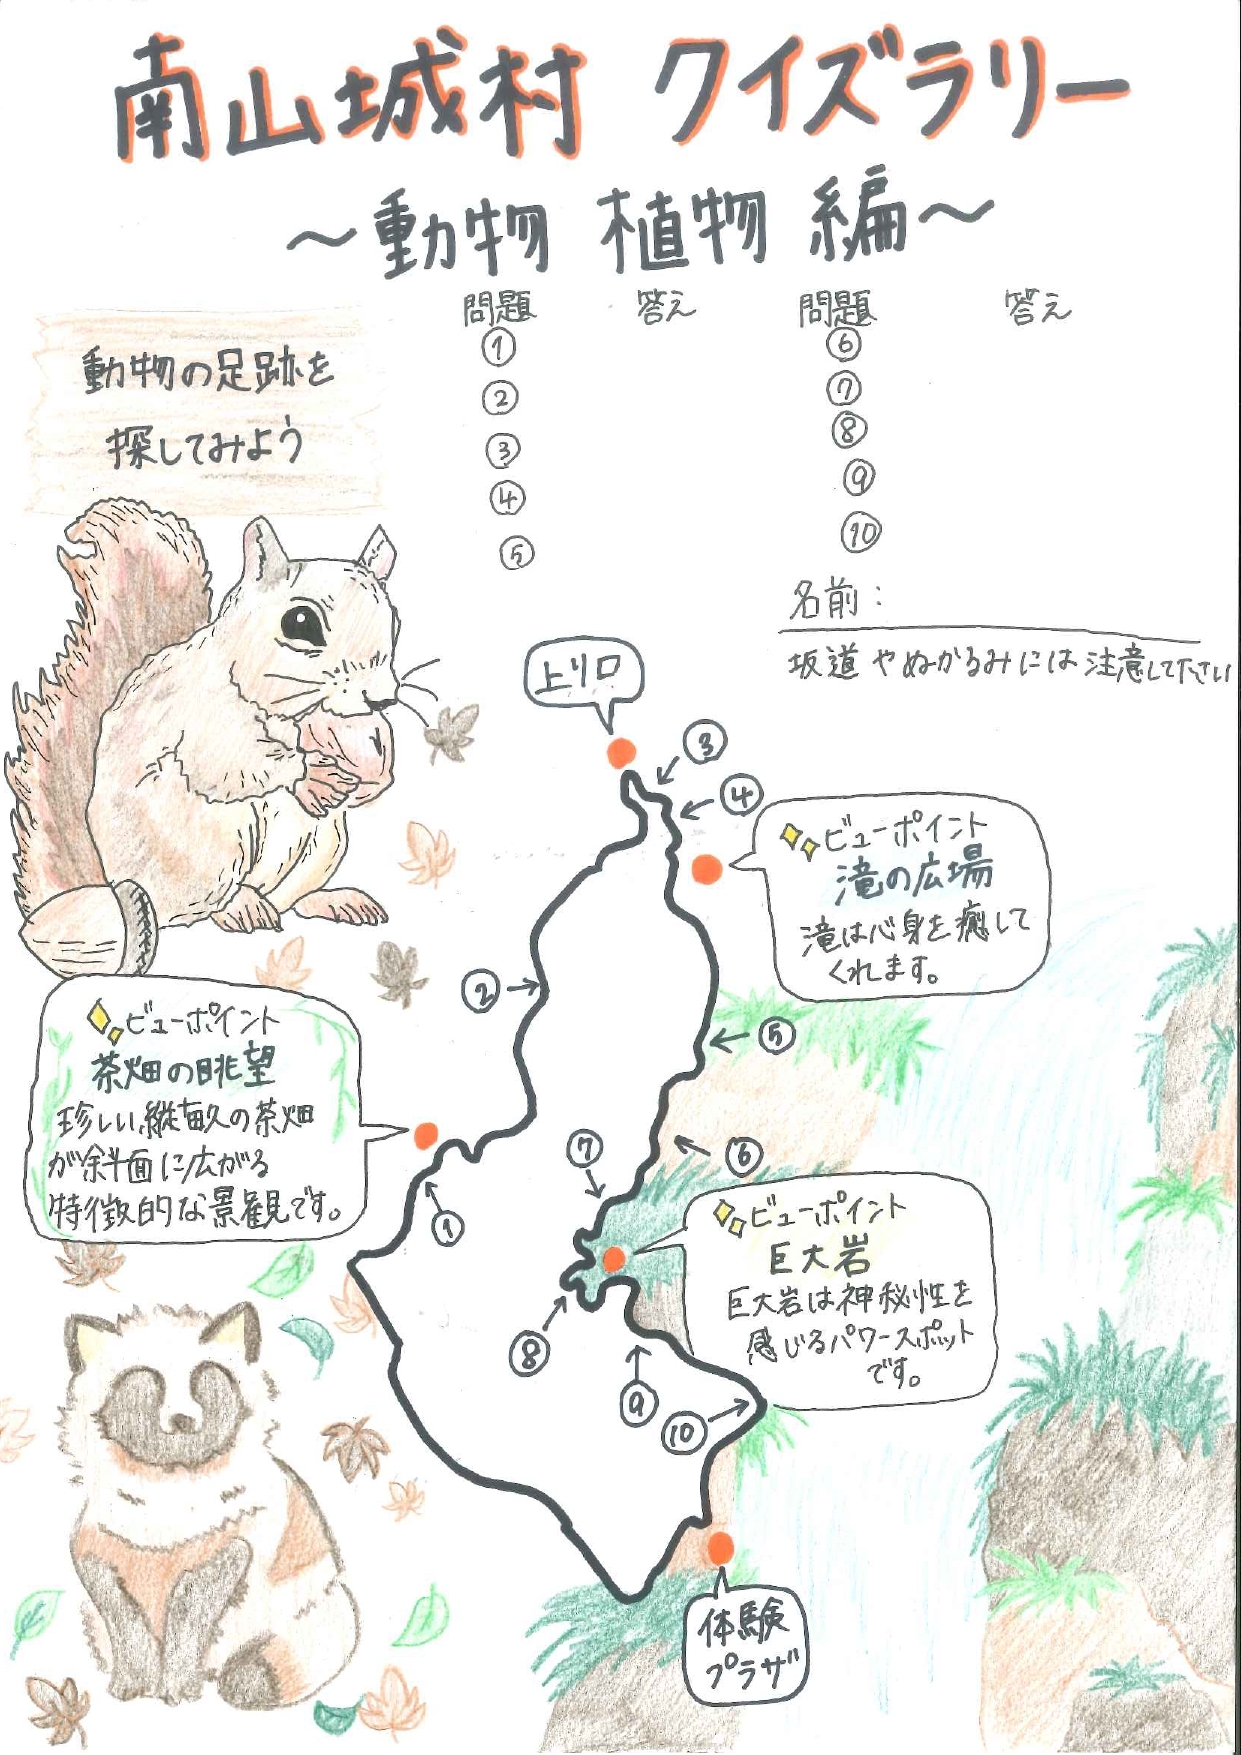 南山城村 クイズラリー
～動物 植物 編～
動物の足跡を
探してみよう
問題 答え 問題 答え
① ⑥
② ⑦
③ ⑧
④ ⑨
⑤ ⑩
名前:
坂道やぬかるみには注意して下さい
上り口
③
④
ビューポイント
滝の広場
滝は心身を癒して
くれます。
②
⑤
ビューポイント
茶畑の眺望
珍しい縦畝の茶畑
が斜面に広がる
特徴的な景観です。
①
⑦
⑥
ビューポイント
巨大岩
巨大岩は神秘性を
感じるパワースポット
です。
⑧
⑨
⑩
体験
プラザ